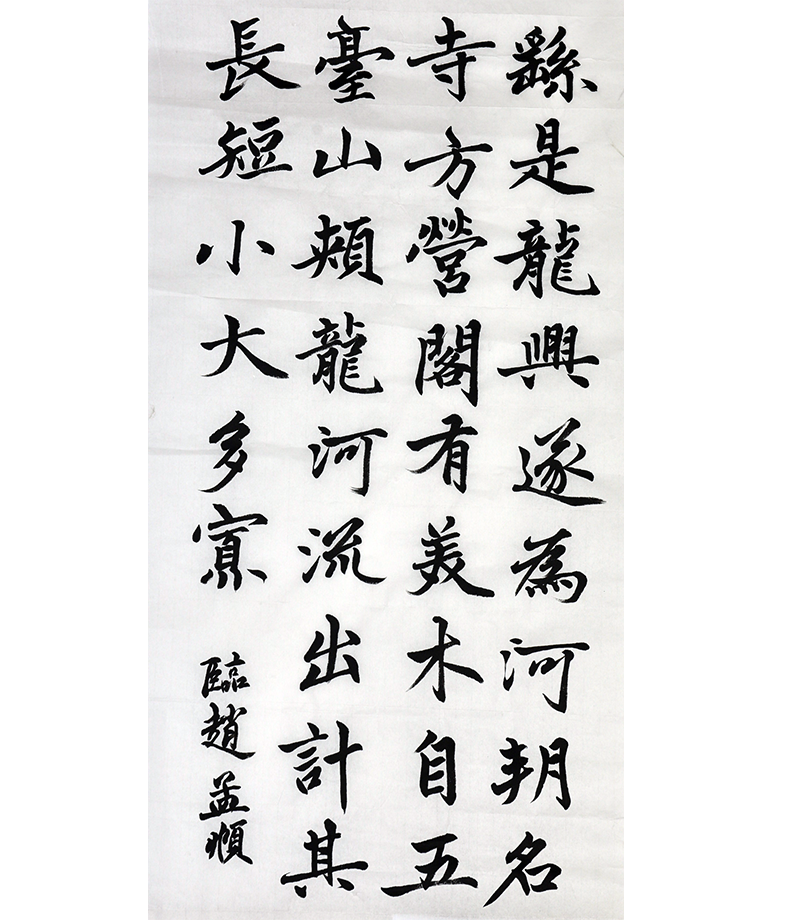 繇是龍興遂為河朔名
寺方營閣有美木自五
臺山頰龍河流出計其
長短小大多寡
臨趙孟頫